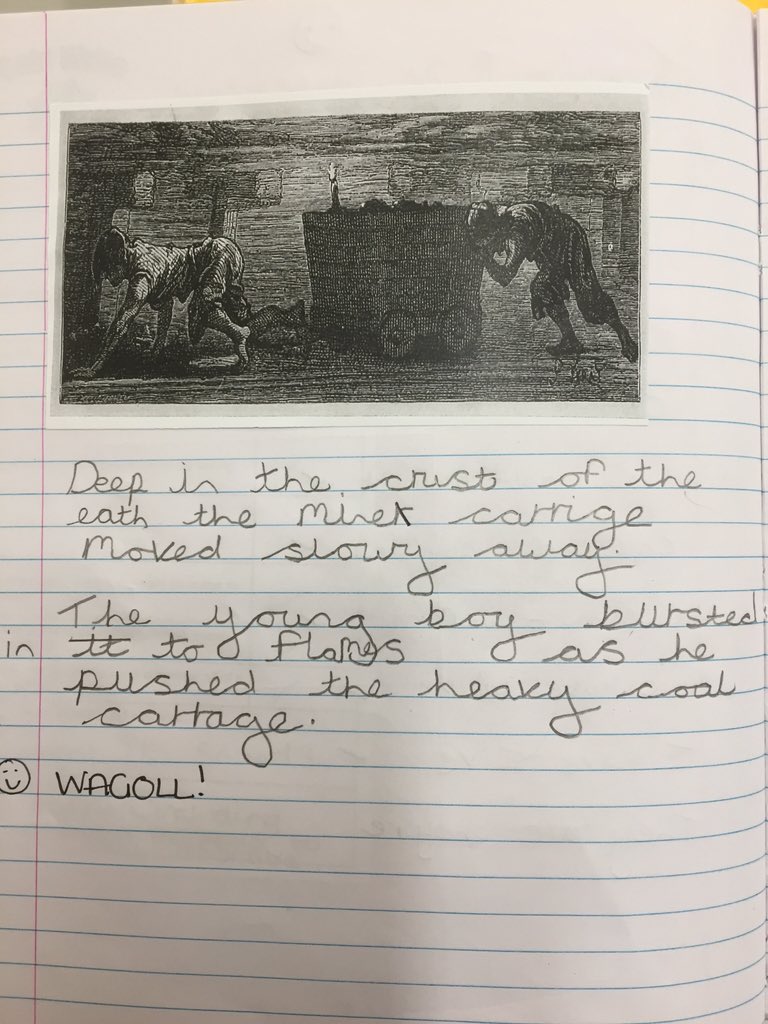 Deep in the crust of the
eath the carrige
Moved slowy away.
The young boy bursted
in to flames as he
pushed the heavy coal
cartage.
WAGOLL!